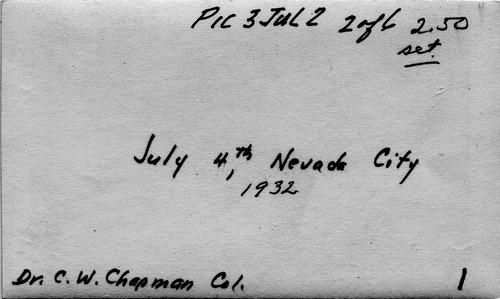 PIC 3 JUL 2 2 of 6 2.50
set.
July 4th, Nevada City
1932
Dr. C. W. Chapman Col. 1